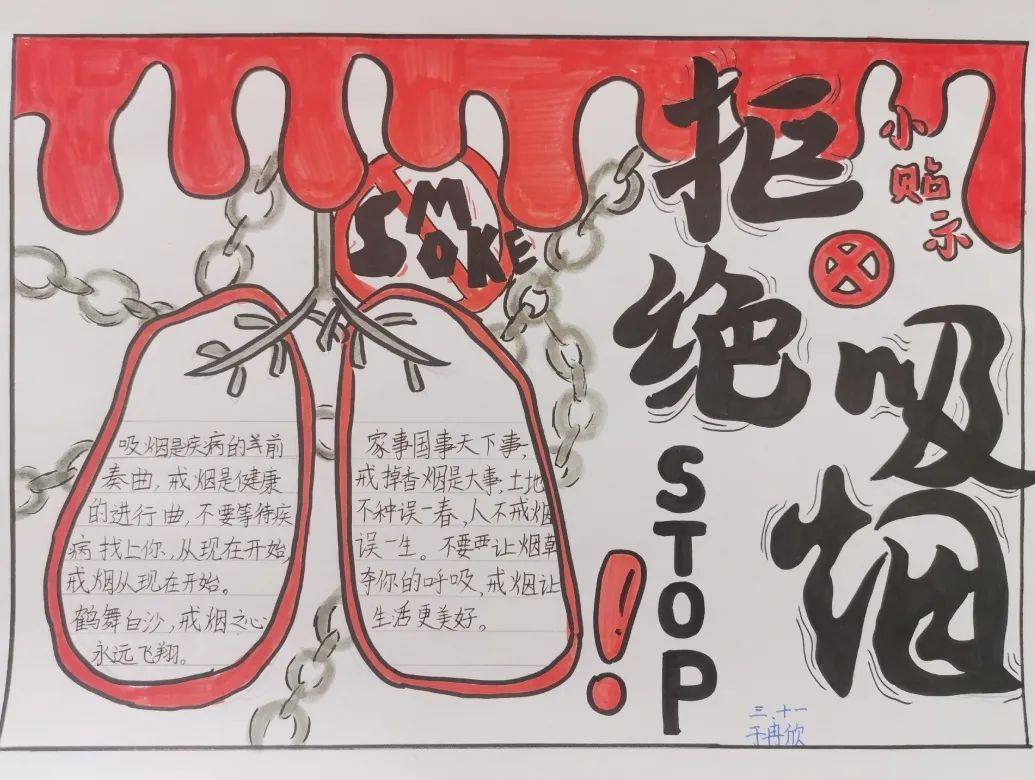 拒绝
吸烟
小贴示
SMOKE
STOP
吸烟是疾病的前
奏曲,戒烟是健康
的进行曲,不要等待疾
病找上你,从现在开始,
戒烟从现在开始。
鹤舞白沙,戒烟之心
永远飞翔。
家事国事天下事,
戒掉香烟是大事,土地
不种误一春,人不戒烟
误一生。不要让烟草
夺你的呼吸,戒烟让
生活更美好。
!
三.十一
于冉欣